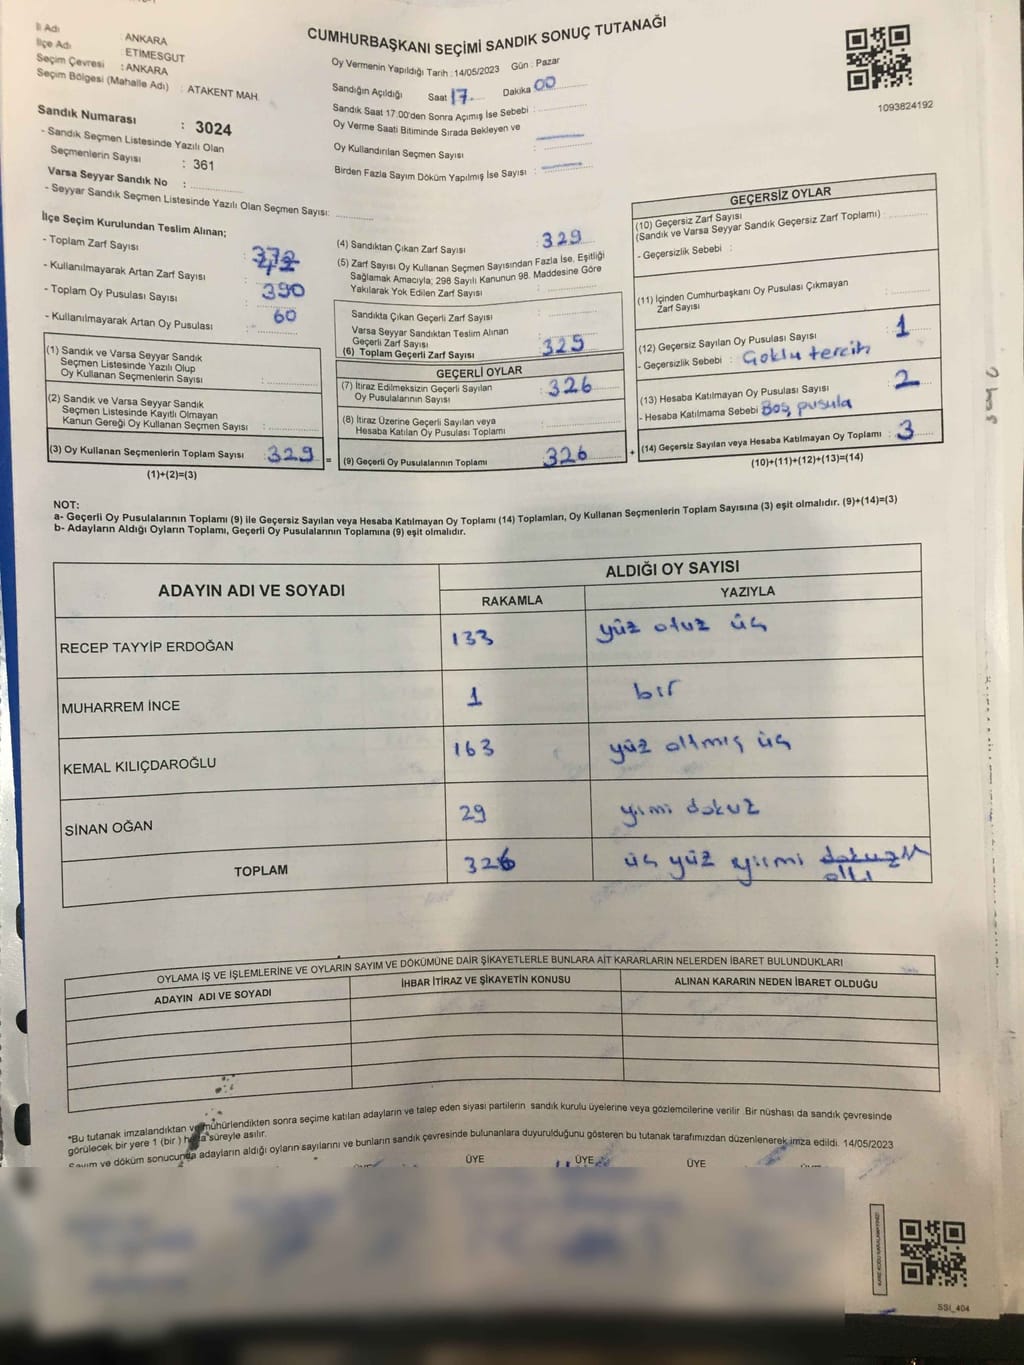 İl Adı : ANKARA
İlçe Adı : ETİMESGUT
Seçim Çevresi : ANKARA
Seçim Bölgesi (Mahalle Adı) : ATAKENT MAH.
CUMHURBAŞKANI SEÇİMİ SANDIK SONUÇ TUTANAĞI
Oy Vermenin Yapıldığı Tarih : 14/05/2023 Gün : Pazar
Sandığın Açıldığı Saat 17 Dakika 00
Sandık Saat 17.00'den Sonra Açımış İse Sebebi :
Oy Verme Saati Bitiminde Sırada Bekleyen ve
Oy Kullandırılan Seçmen Sayısı :
Birden Fazla Sayım Döküm Yapılmış İse Sayısı :
1093824192
Sandık Numarası : 3024
- Sandık Seçmen Listesinde Yazılı Olan
Seçmenlerin Sayısı : 361
Varsa Seyyar Sandık No :
- Seyyar Sandık Seçmen Listesinde Yazılı Olan Seçmen Sayısı:
İlçe Seçim Kurulundan Teslim Alınan;
- Toplam Zarf Sayısı :
- Kullanılmayarak Artan Zarf Sayısı :
- Toplam Oy Pusulası Sayısı : 390
- Kullanılmayarak Artan Oy Pusulası : 60
(1) Sandık ve Varsa Seyyar Sandık
Seçmen Listesinde Yazılı Olup
Oy Kullanan Seçmenlerin Sayısı :
(2) Sandık ve Varsa Seyyar Sandık
Seçmen Listesinde Kayıtlı Olmayan
Kanun Gereği Oy Kullanan Seçmen Sayısı :
(3) Oy Kullanan Seçmenlerin Toplam Sayısı : 329
(1)+(2)=(3)
(4) Sandıktan Çıkan Zarf Sayısı : 329
(5) Zarf Sayısı Oy Kullanan Seçmen Sayısından Fazla İse, Eşitliği
Sağlamak Amacıyla; 298 Sayılı Kanunun 98. Maddesine Göre
Yakılarak Yok Edilen Zarf Sayısı :
Sandıkta Çıkan Geçerli Zarf Sayısı :
Varsa Seyyar Sandıktan Teslim Alınan
Geçerli Zarf Sayısı :
(6) Toplam Geçerli Zarf Sayısı : 329
GEÇERLİ OYLAR
(7) İtiraz Edilmeksizin Geçerli Sayılan
Oy Pusulalarının Sayısı : 326
(8) İtiraz Üzerine Geçerli Sayılan veya
Hesaba Katılan Oy Pusulası Toplamı :
= (9) Geçerli Oy Pusulalarının Toplamı : 326
GEÇERSİZ OYLAR
(10) Geçersiz Zarf Sayısı
(Sandık ve Varsa Seyyar Sandık Geçersiz Zarf Toplamı) :
- Geçersizlik Sebebi :
(11) İçinden Cumhurbaşkanı Oy Pusulası Çıkmayan
Zarf Sayısı :
(12) Geçersiz Sayılan Oy Pusulası Sayısı : 1
- Geçersizlik Sebebi : Çoklu tercih
(13) Hesaba Katılmayan Oy Pusulası Sayısı : 2
- Hesaba Katılmama Sebebi Boş pusula
+ (14) Geçersiz Sayılan veya Hesaba Katılmayan Oy Toplamı : 3
(10)+(11)+(12)+(13)=(14)
NOT:
a- Geçerli Oy Pusulalarının Toplamı (9) ile Geçersiz Sayılan veya Hesaba Katılmayan Oy Toplamı (14) Toplamları, Oy Kullanan Seçmenlerin Toplam Sayısına (3) eşit olmalıdır. (9)+(14)=(3)
b- Adayların Aldığı Oyların Toplamı, Geçerli Oy Pusulalarının Toplamına (9) eşit olmalıdır.
ADAYIN ADI VE SOYADI
ALDIĞI OY SAYISI
RAKAMLA YAZIYLA
RECEP TAYYİP ERDOĞAN 133 yüz otuz üç
MUHARREM İNCE 1 bir
KEMAL KILIÇDAROĞLU 163 yüz altmış üç
SİNAN OĞAN 29 yirmi dokuz
TOPLAM 326 üç yüz yirmi dokuz
altı
OYLAMA İŞ VE İŞLEMLERİNE VE OYLARIN SAYIM VE DÖKÜMÜNE DAİR ŞİKAYETLERLE BUNLARA AİT KARARLARIN NELERDEN İBARET BULUNDUKLARI
ADAYIN ADI VE SOYADI İHBAR İTİRAZ VE ŞİKAYETİN KONUSU ALINAN KARARIN NEDEN İBARET OLDUĞU
*Bu tutanak imzalandıktan ve mühürlendikten sonra seçime katılan adayların ve talep eden siyasi partilerin sandık kurulu üyelerine veya gözlemcilerine verilir. Bir nüshası da sandık çevresinde
görülecek bir yere 1 (bir) hafta süreyle asılır.
Sayım ve döküm sonucunda adayların aldığı oyların sayılarını ve bunların sandık çevresinde bulunanlara duyurulduğunu gösteren bu tutanak tarafımızdan düzenlenerek imza edildi. 14/05/2023
ÜYE ÜYE ÜYE ÜYE
SSI_404